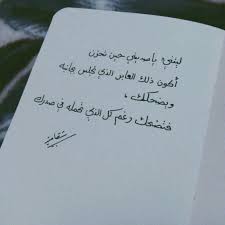 ليتني يا صديقي حين تحزن
أكون ذلك العابر الذي تجلس بجانبه
ويضحكك ،
فتضحك رغم كل الذي تحمله في صدرك